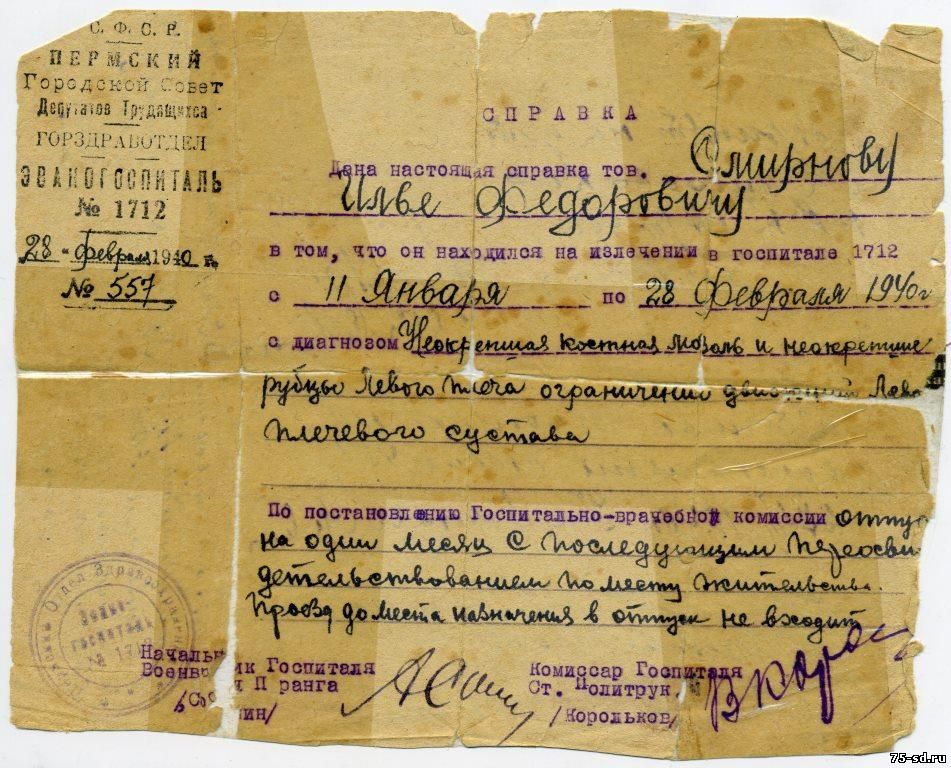 С. Ф. С. Р.
ПЕРМСКИЙ
Городской Совет
Депутатов Трудящихся
ГОРЗДРАВОТДЕЛ
ЭВАКОГОСПИТАЛЬ
№ 1712
28 " февраля 1940 г.
№ 557
СПРАВКА
Дана настоящая справка тов. Смирнову
Илье Федоровичу
в том, что он находился на излечении в госпитале 1712
с 11 Января по 28 Февраля 1940 г
с диагнозом Неокрепшая костная мозоль и неокрепшие
рубцы Левого плеча ограничении движений Лево
плечевого сустава
По постановлению Госпитально-врачебной комиссии отпу
на один месяц с последующим переосви
детельствованием по месту жительства.
Проезд до места назначения в отпуск не входит
Отдел Здравоохранения
госпиталь
№ 171
Начальник Госпиталя
Военв II ранга
ин/
Комиссар Госпиталя
Ст. Политрук
/Корольков/
75-sd.ru